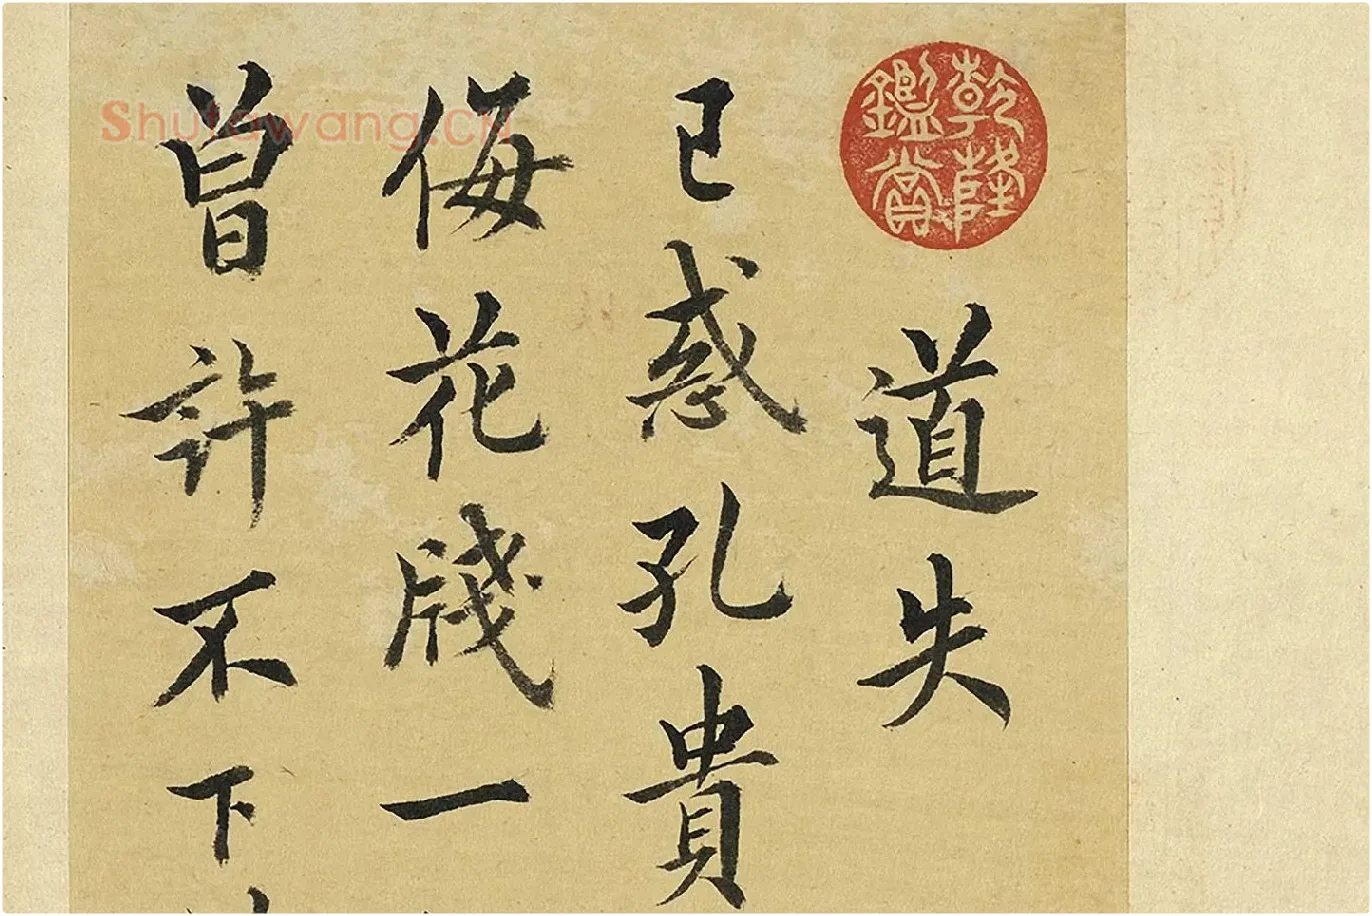 乾隆
鑑賞
道失
已惑孔貴
侮花牋一
曾許不下
Shufawang.cn